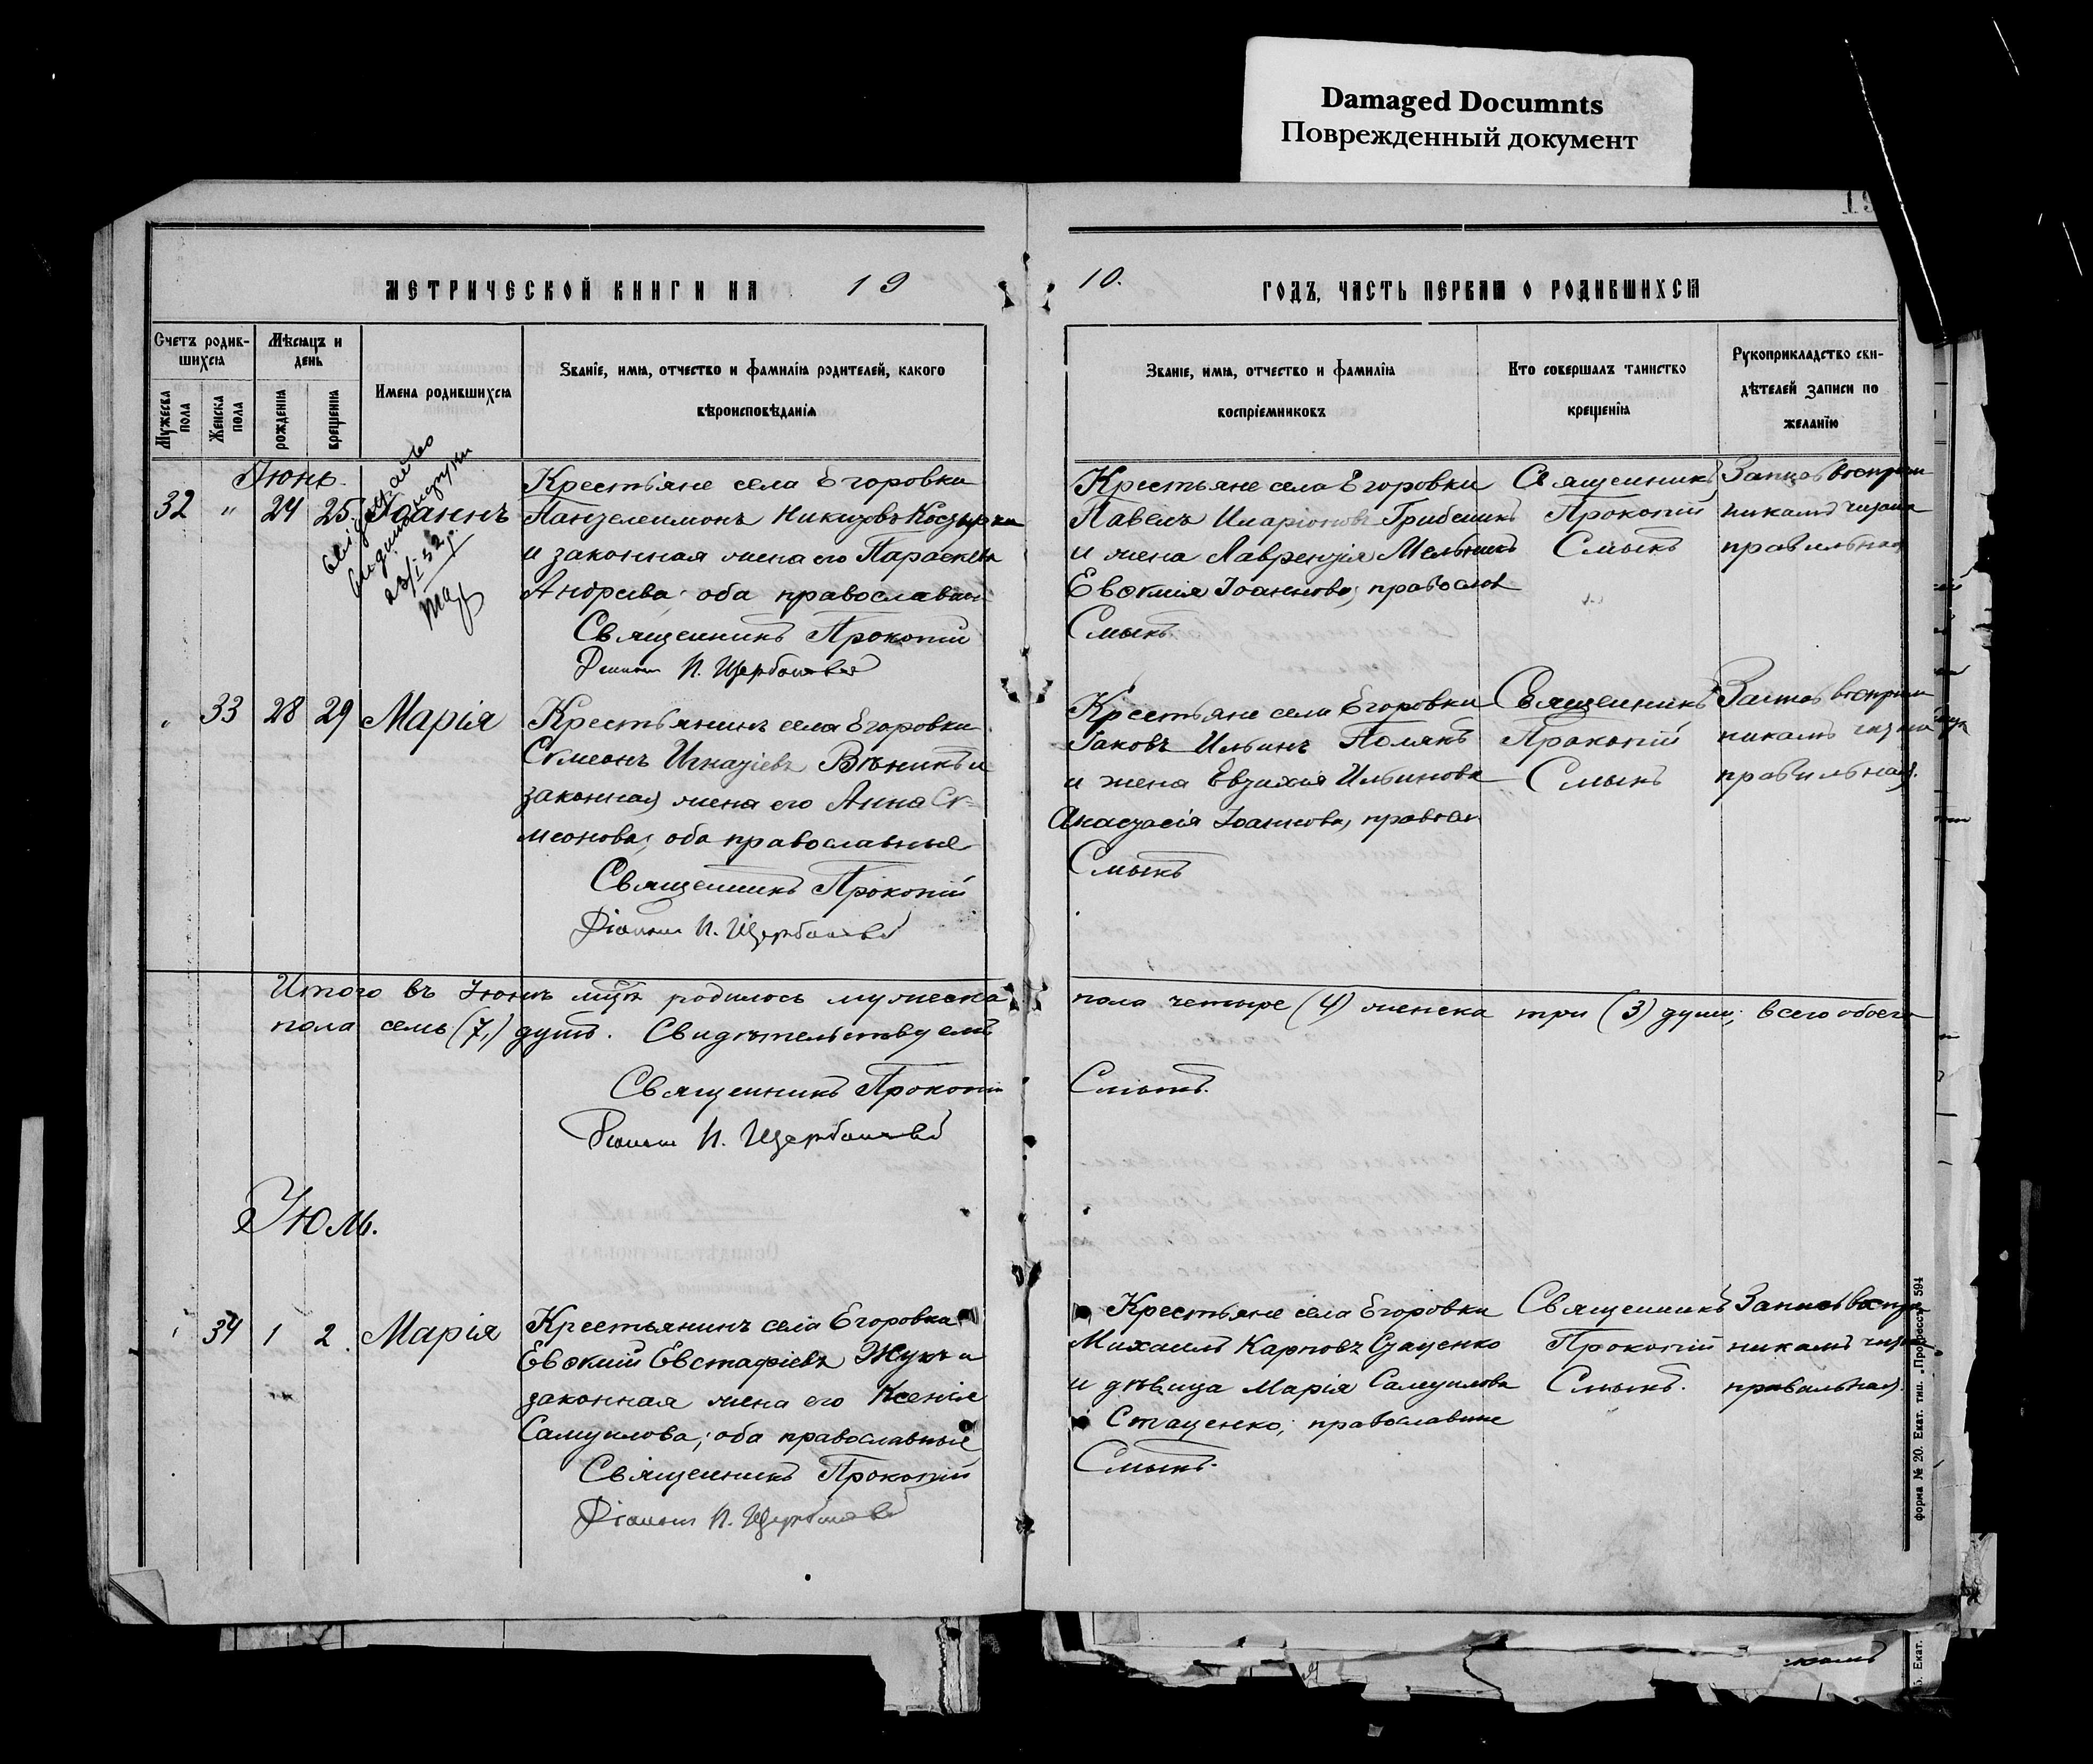 Damaged Documnts
Поврежденный документ
МЕТРИЧЕСКОЙ КНИГИ НА 19
Счетъ родив-
шихся
Мѣсяцъ и
день
Мужеска пола
Женска пола
рожденія
крещенія
Имена родившихся
Званіе, имя, отчество и фамилія родителей, какого
вѣроисповѣданія
Іюнь.
32 " 24 25 Іоаннъ
Крестьяне села Егоровки
Пантелеимонъ Никитовъ Козырка
и законная жена его Параскева
Андреева; оба православные
Священникъ Прокопій
И. Щербаковъ
33 28 29 Марія
Крестьянинъ села Егоровки
Сѵмеонъ Игнатіевъ Вѣникъ и
законная жена его Анна Сѵ-
меонова; оба православные
Священникъ Прокопій
Діаконъ И. Щербаковъ
Итого въ Іюнѣ родилось мужеска
пола семь (7,) душъ. Свидѣтельствуемъ
Священникъ Прокопій
И. Щербаковъ
Іюль.
34 1 2. Марія
Крестьянинъ села Егоровки
Евѳимій Евстафіевъ Жукъ и
законная жена его Ксенія
Самуилова; оба православные
Священникъ Прокопій
Діаконъ И. Щербаковъ
10. ГОДЪ, ЧАСТЬ ПЕРВАЯ О РОДИВШИХСЯ
Званіе, имя, отчество и фамилія
воспріемниковъ
Кто совершалъ таинство
крещенія
Рукоприкладство сви-
дѣтелей записи по
желанію
Крестьяне села Егоровки
Павелъ Иларіоновъ Грибеникъ
и жена Лаврентія Мельникъ
Евѳимія Іоаннова; правосл
Смыкъ
Священникъ
Прокопій
Смыкъ
Запись воспріем
никамъ читана
правильная
Крестьяне села Егоровки
Іаковъ Ильинъ Полякъ
и жена Евтихія Ильинова
Анастасія Іоаннова, правосл
Смыкъ
Священникъ
Прокопій
Смыкъ
Запись воспріем
никамъ читана
правильная.
пола четыре (4) женска три (3) души; всего обоего
Смыкъ.
Крестьяне села Егоровки
Михаилъ Карповъ Стаценко
и дѣвица Марія Самуилова
Стаценко; православные
Смыкъ.
Священникъ
Прокопій
Смыкъ.
Запись воспріе
никамъ читана
правильная.
Форма № 20. Екат. тип. „Прогрессъ" 594